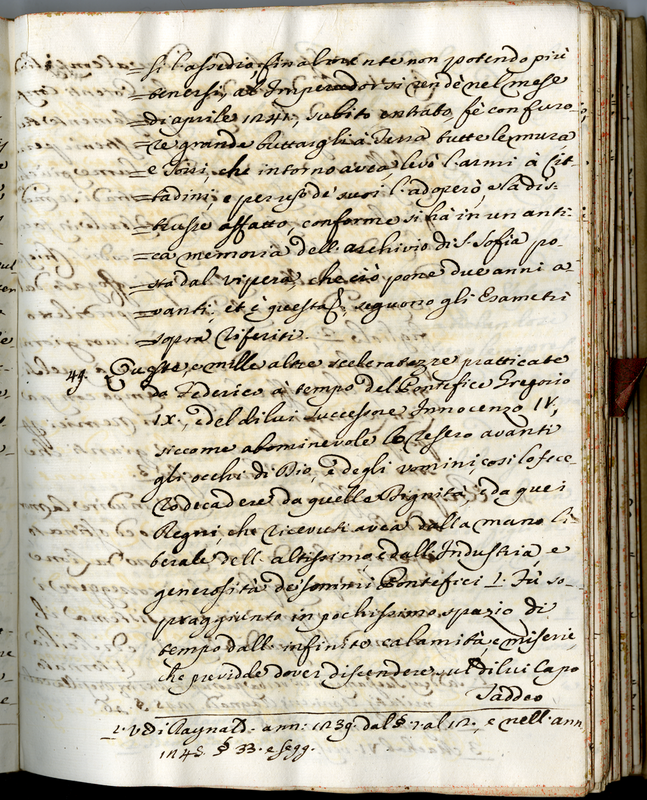 =si l'assediò, finalmente non potendo più
=tenersi, all'Imperador si rendè nel mese
=di aprile 1241, subito entrato, fè con furo-
=re grande buttargli à Terra tutte le mura
=e Torri, che intorno avea levò l'armi à Cit-
=tadini, e per uso de' suoi l'adoperò, e la dis-
=trusse affatto, conforme si hà in un anti-
=ca memoria dell'archivio di S. Sofia po-
=sta dal vipera, che ciò pone due anni a-
=vanti. et è questa, seguono gli Esametri
=sopra riferiti.
49. Queste, e mille altre sceleratezze pratticate
da Federico à tempo del Pontefice Gregorio
IX., e del di lui successore Innocenzo IV,
siccome abominevole lo resero avanti
gli occhi di Dio, e degli vomini, così lo fece-
ro decadere da quella Dignità, e da quei
Regni, che ricevuti avea dalla mano li-
berale dell'altissimo, e dall'Industria, e
generosità de' sommi Pontefici 1. Fù so-
praggiunto in pochissimo spazio di
tempo dall'infinite calamità, e miserie
che previdde dover discendere sul di lui Capo
Taddeo
1. Vedi Raynald. ann: 1239. dal §. 1. al 12., e nell'ann.
1245. § 33. e segg.